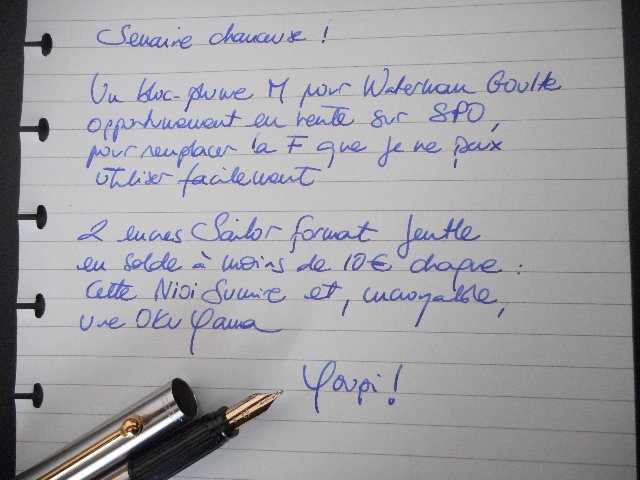 Semaine chanceuse !
Un bloc-plume M pour Waterman Goutte
opportunément en vente sur SPO,
pour remplacer la F que je ne peux
utiliser facilement
2 encres Sailor format Jentle
en solde à moins de 10€ chaque :
Cette Nioi Sumire et, incroyable,
une Oku Yama
Youpi !